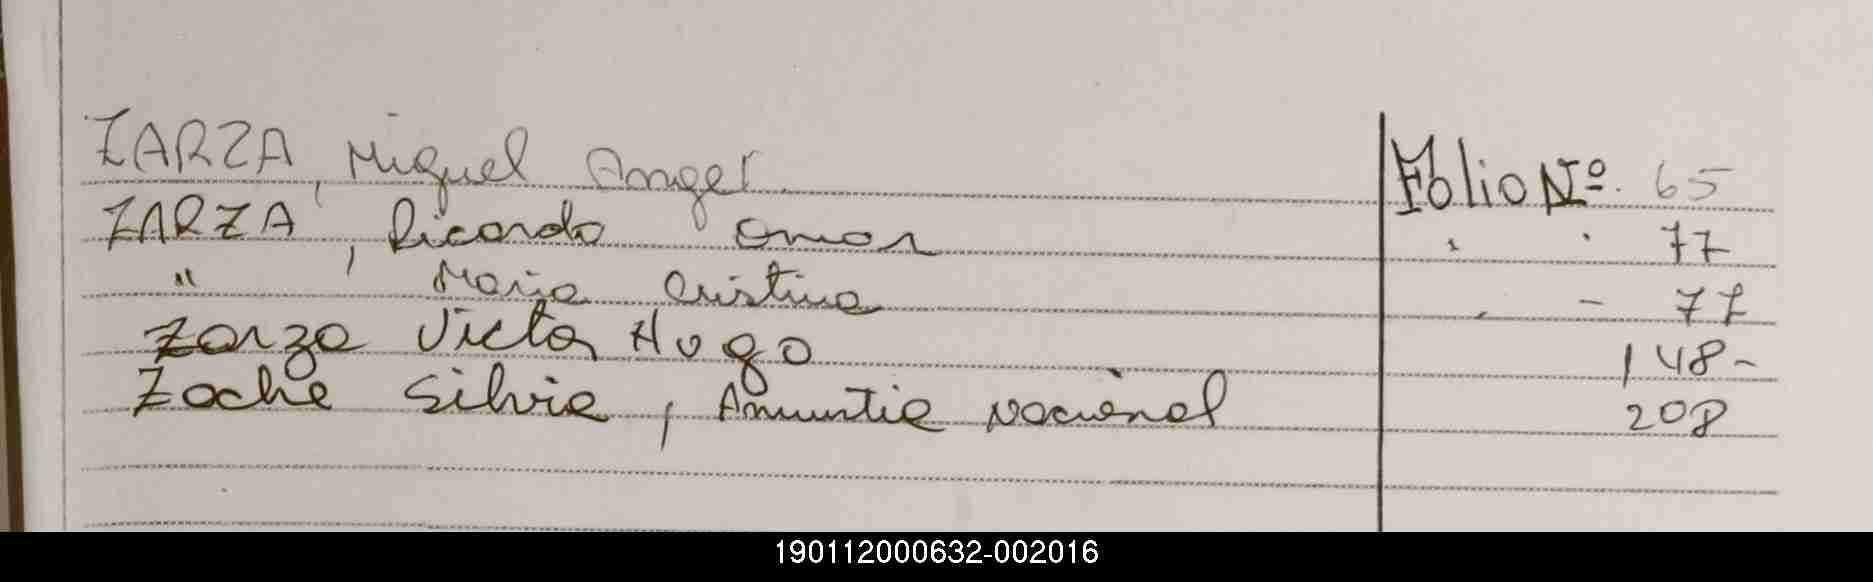 ZARZA, Miguel Angel. Folio Nº. 65
ZARZA, Ricardo Omar " " 77
" Maria Cristina " - 77
Zarza Victor Hugo 148-
Zoche Silvia, Anuntia Nacional 208
190112000632-002016